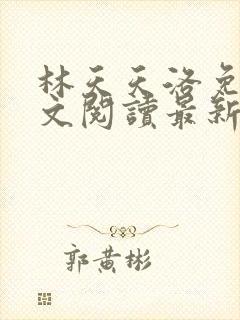 林天天洛免
文閱讀最新
郭黃彬